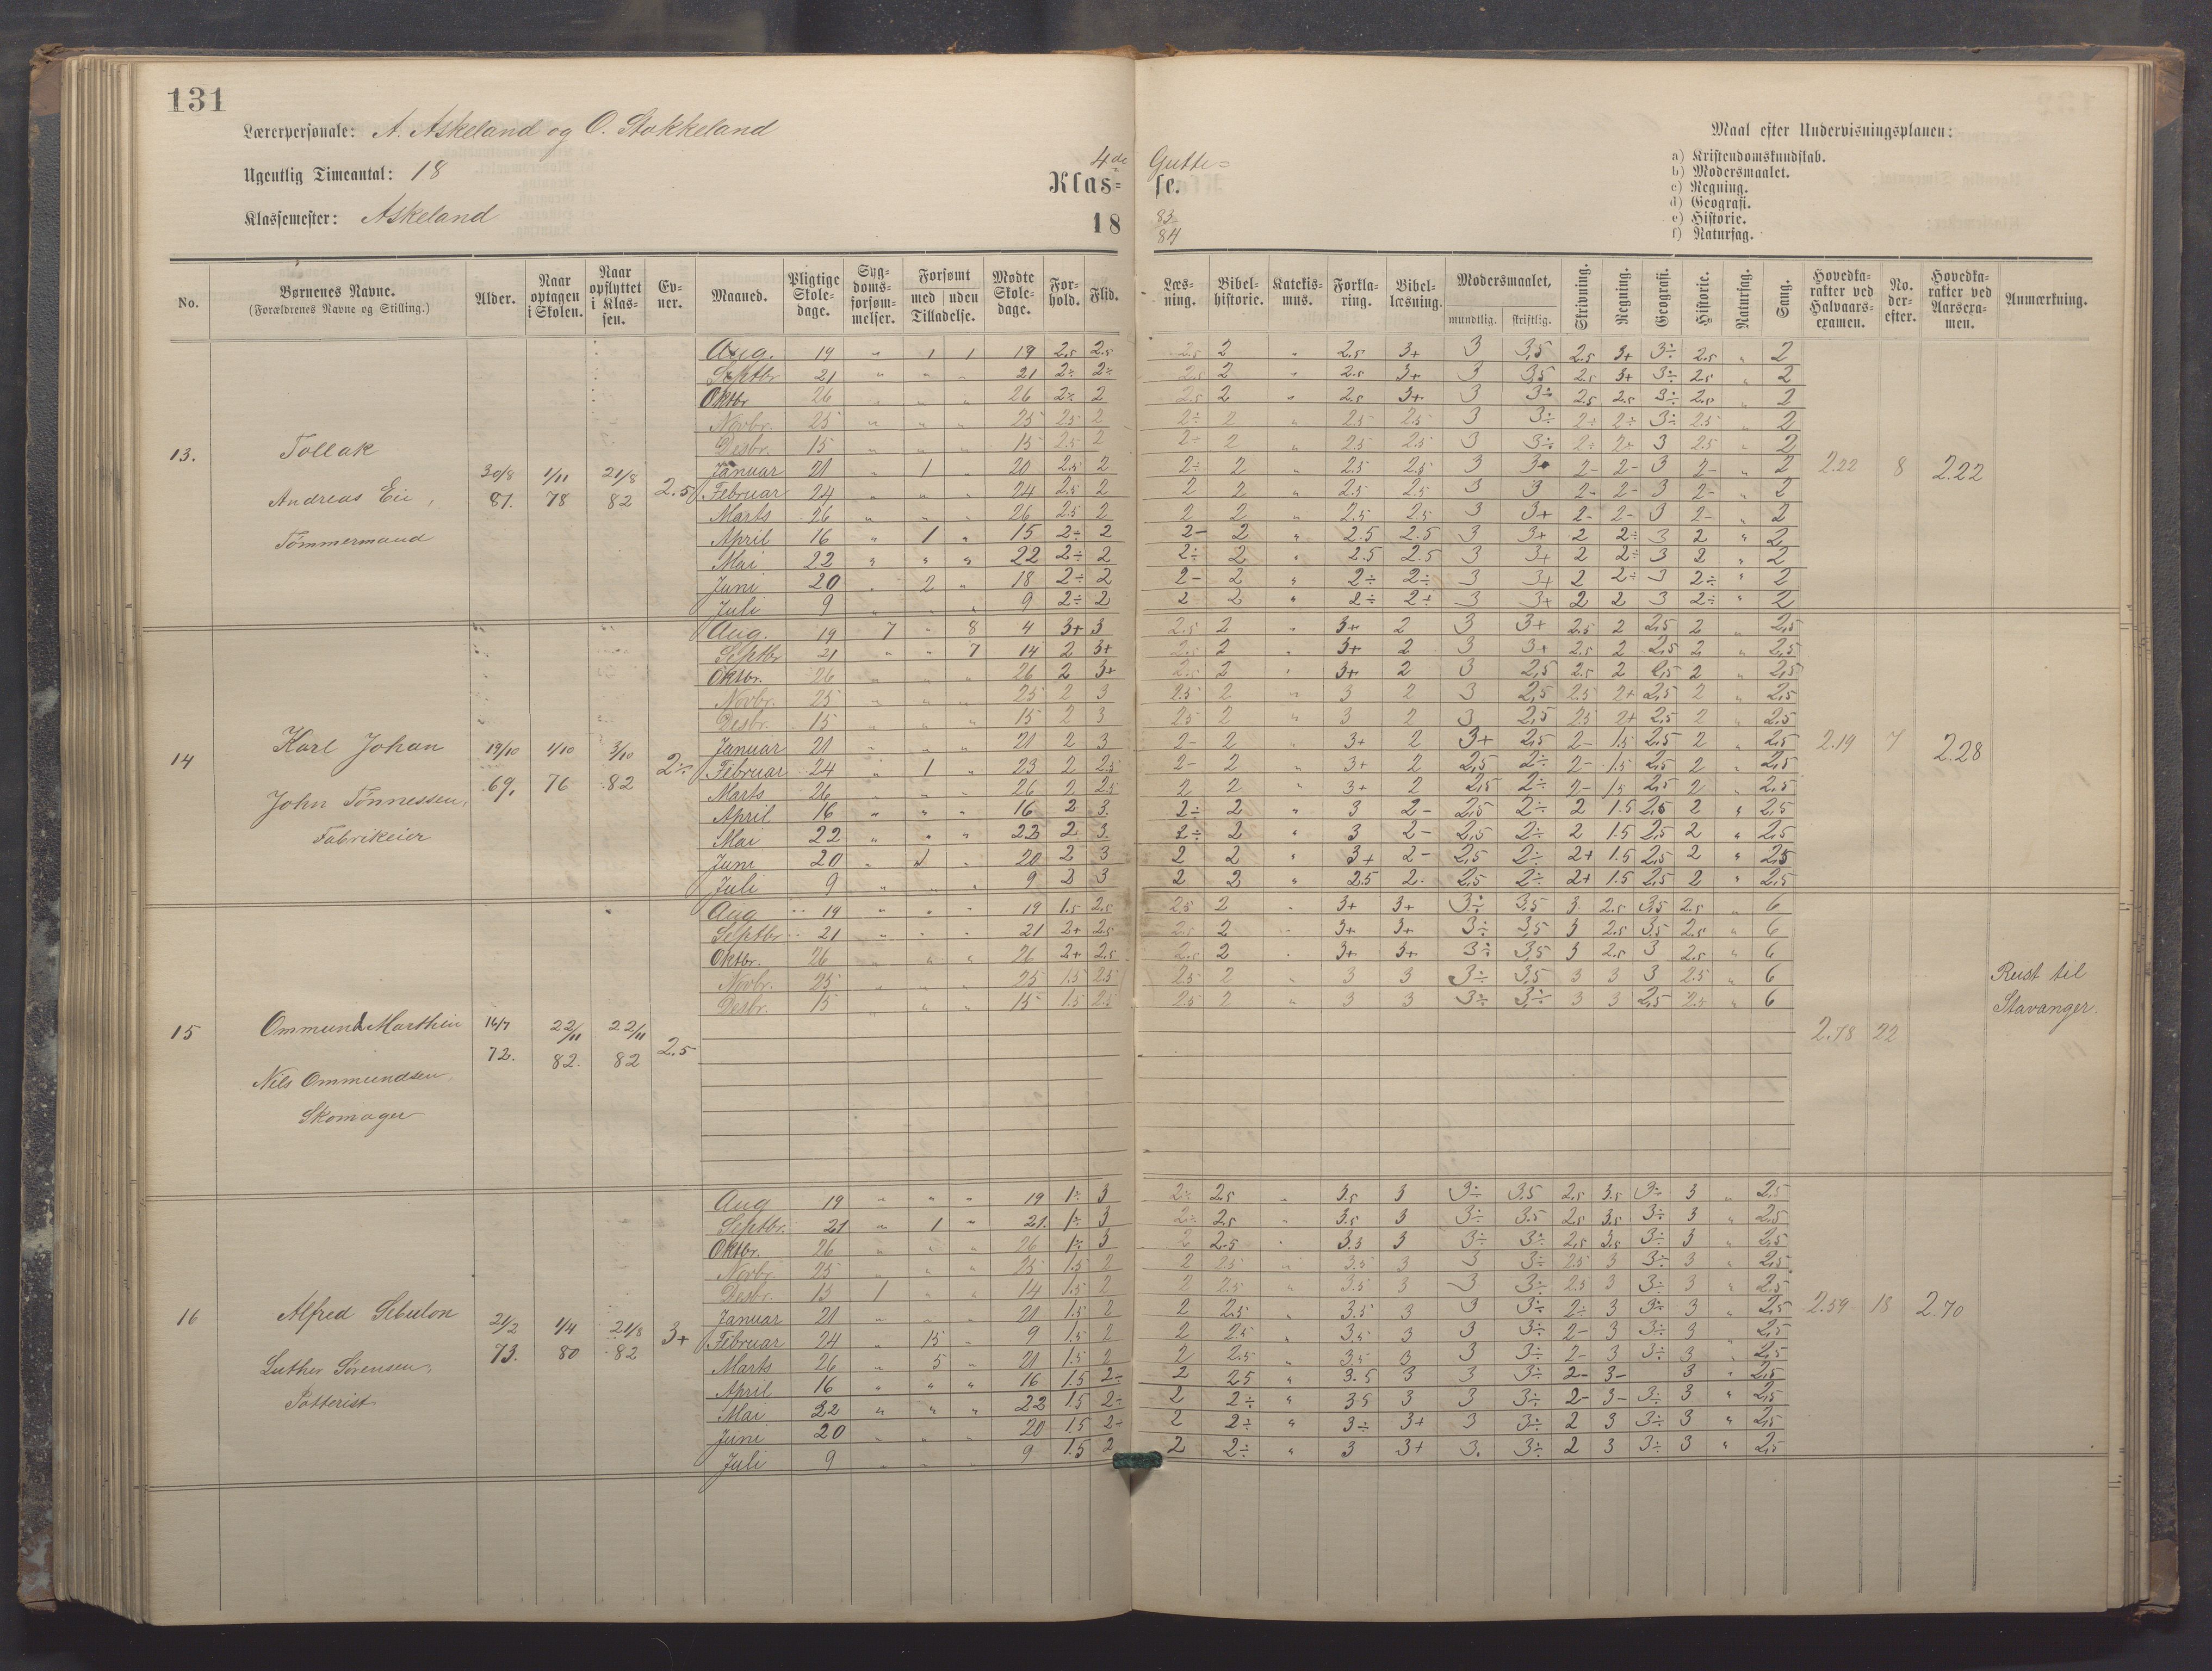 131
Lærerpersonale: A. Askeland og O. Stokkeland
Ugentlig Timeantal: 18
Klassemester: Askeland
4de Gutte=
Klas= se.
18 83/84
Maal efter Undervisningsplanen:
a) Kristendomskundskab.
b) Modersmaalet.
c) Regning.
d) Geografi.
e) Historie.
f) Naturfag.
No. | Børnenes Navne. (Forældrenes Navne og Stilling.) | Alder. | Naar optagen i Skolen. | Naar opflyttet i Klassen. | Evner. | Maaned. | Pligtige Skoledage. | Sygdomsforsømmelser. | Forsømt med Tilladelse. | uden | Mødte Skoledage. | Forhold. | Flid. | Læsning. | Bibelhistorie. | Katekismus. | Forklaring. | Bibellæsning. | Modersmaalet, mundtlig. | skriftlig. | Skrivning. | Regning. | Geografi. | Historie. | Naturfag. | Sang. | Hovedkarakter ved Halvaarsexamen. | No. derefter. | Hovedkarakter ved Aarsexamen. | Anmærkning.
13. Tollak
Andreas Eie,
Tømmermand
30/8 81. 1/11 78 21/8 82 2.5
Aug. 19 " 1 1 19 2.5 2.5 2.5 2 " 2.5 3+ 3 3,5 2.5 3+ 3÷ 2.5 " 2
Septbr 21 " " " 21 2÷ 2÷ 2.5 2 " 2.5 3+ 3 3,5 2.5 3+ 3÷ 2.5 " 2
Oktbr 26 " " " 26 2÷ 2 2.5 2 " 2.5 3+ 3 3÷ 2.5 2.5 3÷ 2.5 " 2
Novbr. 25 " " " 25 2.5 2 2÷ 2 " 2.5 2.5 3 3÷ 2÷ 2÷ 3÷ 2.5 " 2
Desbr. 15 " " " 15 2.5 2 2÷ 2 " 2.5 2.5 3 3÷ 2÷ 2÷ 3 2.5 " 2
Januar 21 " 1 " 20 2.5 2 2÷ 2 " 2.5 2.5 3 3 2- 2- 3 2- " 2
Februar 24 " " " 24 2.5 2 2 2 " 2.5 2.5 3 3 2- 2- 3 2- " 2
Marts 26 " " " 26 2.5 2 2 2 " 2.5 2.5 3 3+ 2- 2- 3 2- " 2
April 16 " 1 " 15 2÷ 2 2- 2 " 2.5 2.5 3 3+ 2 2÷ 3 2 " 2
Mai 22 " " " 22 2÷ 2 2÷ 2 " 2.5 2.5 3 3+ 2 2÷ 3 2 " 2
Juni 20 " 2 " 18 2÷ 2 2- 2 " 2÷ 2÷ 3 3+ 2 2÷ 3 2÷ " 2
Juli 9 " " " 9 2÷ 2 2 2 " 2÷ 2+ 3 3+ 2 2 3 2÷ " 2
2.22 8 2.22
14 Karl Johan
John Tønnessen,
Fabrikeier
19/10 69, 1/10 76 3/10 82 2÷
Aug. 19 7 " 8 4 3+ 3 2.5 2 " 3+ 2 3 3+ 2.5 2 2,5 2 " 2,5
Septbr 21 " " 7 14 2 3+ 2.5 2 " 3+ 2 3 3+ 2.5 2 2,5 2 " 2,5
Oktbr. 26 " " " 26 2 3+ 2.5 2 " 3+ 2 3 2,5 2.5 2 2,5 2 " 2,5
Novbr. 25 " " " 25 2 3 2.5 2 " 3 2 3 2,5 2.5 2+ 2,5 2 " 2,5
Desbr. 15 " " " 15 2 3 2.5 2 " 3 2 3 2,5 2.5 2+ 2,5 2 " 2,5
Januar 21 " " " 21 2 3 2- 2 " 3+ 2 3+ 2,5 2- 1.5 2,5 2 " 2,5
Februar 24 " 1 " 23 2 2.5 2- 2 " 3+ 2 2,5 2÷ 2- 1.5 2,5 2 " 2,5
Marts 26 " " " 26 2 2.5 2 2 " 3+ 2 2,5 2÷ 2- 1.5 2,5 2 " 2,5
April 16 " " " 16 2 3. 2÷ 2 " 3 2- 2,5 2÷ 2 1.5 2,5 2 " 2,5
Mai 22 " " " 22 2 3. 2÷ 2 " 3 2- 2,5 2÷ 2 1.5 2,5 2 " 2,5
Juni 20 " " 20 2 3 2 2 " 3+ 2- 2,5 2÷ 2+ 1.5 2,5 2 " 2,5
Juli 9 " " " 9 2 3 2 2 " 2.5 2. 2,5 2÷ 2+ 1.5 2,5 2 " 2,5
2.19 7 2.28
15 Ommund Marthin
Nils Ommundsen,
Skomager
16/7 72. 22/11 82. 22/11 82 2.5
Aug 19 " " " 19 1.5 2.5 2.5 2 " 3+ 3+ 3÷ 3,5 3 2.5 3,5 2.5 " 6
Septbr 21 " " " 21 2+ 2.5 2.5 2 " 3+ 3+ 3÷ 3,5 3 2.5 3,5 2.5 " 6
Oktbr. 26 " " " 26 2+ 2.5 2.5 2 " 3+ 3+ 3÷ 3,5 3 2.5 3 2.5 " 6
Novbr. 25 " " " 25 1.5 2.5 2.5 2 " 3 3 3÷ 3,5 3 3 3 2.5 " 6
Desbr. 15 " " " 15 1.5 2.5 2.5 2 " 3 3 3÷ 3÷ 3 3 2,5 2.5 " 6
2.78 22
Reist til
Stavanger.
16 Alfred Sebulon
Luther Sørensen,
Potterist
21/2 73. 1/4 80 21/8 82 3+
Aug 19 " " " 19 1÷ 3 2÷ 2.5 " 3.5 3 3÷ 3.5 2.5 3.5 3÷ 3 " 2,5
Septbr. 21 " 1 " 21. 1÷ 3 2÷ 2.5 " 3.5 3 3÷ 3.5 2.5 3.5 3÷ 3 " 2,5
Oktbr. 26 " " " 26 1÷ 3 2 2.5 " 3.5 3 3÷ 3÷ 2.5 3.5 3÷ 3 " 2,5
Novbr. 25 " " " 25 1.5 2 2 2.5 " 3.5 3 3 3÷ 2.5 3 3÷ 3 " 2,5
Desbr. 15 1 " " 14 1.5 2 2 2.5 " 3.5 3 3 3÷ 2.5 3 3÷ 3 " 2,5
Januar 21 " " " 21 1.5 2 2 2.5 " 3.5 3 3 3÷ 2÷ 3 3÷ 3 " 2,5
Februar 24 " 15 " 9 1.5 2 2 2.5 " 3.5 3 3 3÷ 2- 3 3÷ 3 " 2,5
Marts 26 " 5 " 21 1.5 2 2 2.5 " 3.5 3 3 3÷ 2- 3 3÷ 3 " 2,5
April 16 " " " 16 1.5 2÷ 2 2.5 " 3.5 3 3 3÷ 2- 3- 3 " 2,5
Mai 22 " " " 22 1.5 2÷ 2 2÷ " 3.5 3 3 3÷ 2- 3- 3÷ 3 " 2,5
Juni 20 " " " 20 1.5 2÷ 2 2÷ " 3÷ 3+ 3 3÷ 2 3 3÷ 3 " 2,5
Juli 9 " " " 9 1.5 2 2 2÷ " 3 3+ 3. 3÷ 2 3 3÷ 3 " 2,5
2.59 18 2.70